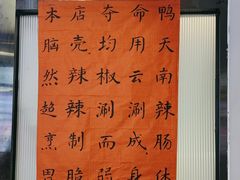 本店夺命鸭
脑壳均用天
然辣椒云南
超辣涮涮辣
烹制而成.肠
胃脆弱身体